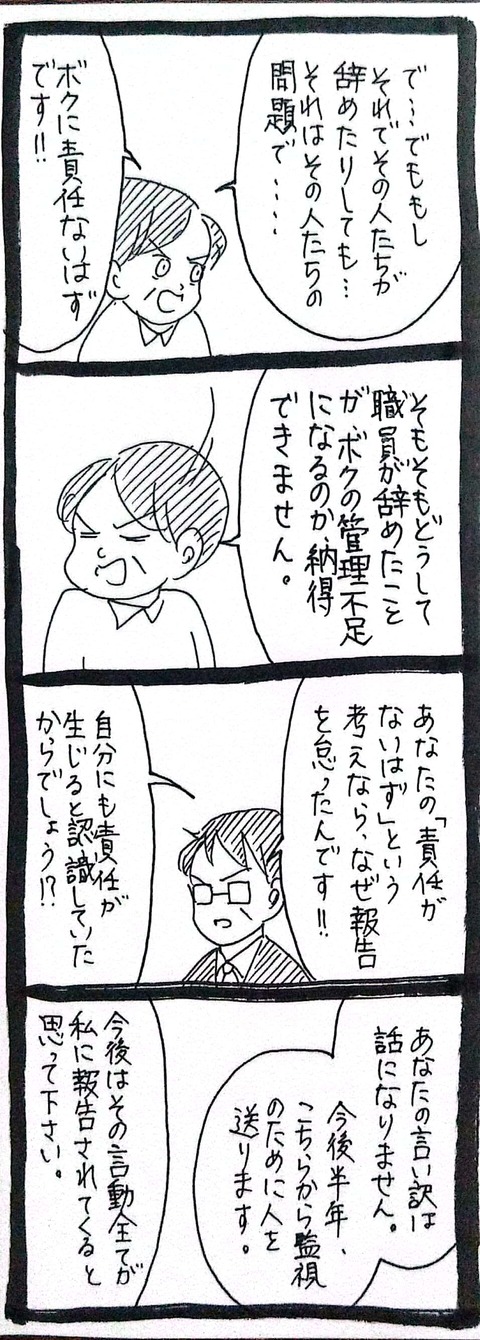 で…でももし
それでその人たちが
辞めたりしても…
それはその人たちの
問題で……
ボクに責任ないはず
です!!
そもそもどうして
職員が辞めたこと
が、ボクの管理不足
になるのか、納得
できません。
あなたの「責任が
ないはず」という
考えなら、なぜ報告
を怠ったんです!!
自分にも責任が
生じると認識していた
からでしょう!?
あなたの言い訳は
話になりません。
今後半年、
こちらから監視
のために人を
送ります。
今後はその言動全てが
私に報告されてくると
思って下さい。